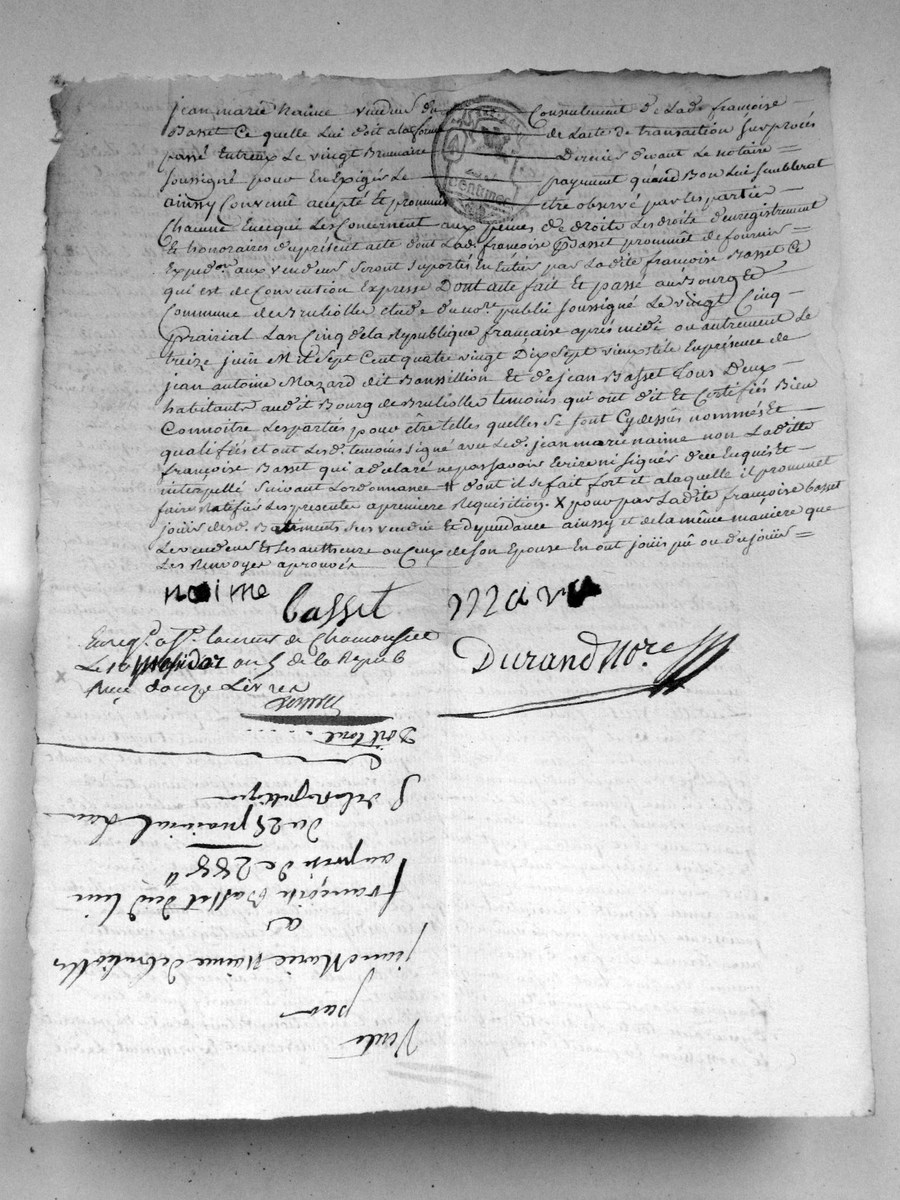 jean marie naime vendeur du Consentement de Lade françoise
Basset Ce quelle Lui doit a la forme de Lacte de transaction Surprocés
passé Entreux Le vingt Brumaire Dernier devant Le notaire
Soussigné pour En Exiger Le payement quand Bon Lui Semblerat
ainsy Convenû accepté Et promis être observé par Les partie
Chacune En ce qui Les Concernent aux peines de droits Les droits d'enregistrement
Et honoraires du present acte dont Lad. françoise Basset promnêt de fournir
Expedon. aux vendeur Seront Suportés En Entier par Ladite françoise Basset Ce
qui est de Convention Expresse Dont acte fait Et passé au Bourg Et
Commune de Brulliolle Etude du nore. public Soussigné Le vingt Cinq
prairial L'an Cinq de la Republique française après midi ou autrement Le
treize juin Mil Sept Cent quatre vingt Dix Sept vieux stile En présence de
jean antoine Mazard dit Bansillion Et de jean Basset tous Deux
habitants audit Bourg de Brulliolle temoins qui ont dit Et Certifiés Bien
Connoitre Les parties pour être telles quelles Se Sont Cy dessus nommés Et
qualifiés et ont Lesd. temoins Signé avec Led. jean marie naime non Laditte
françoise Basset qui a declaré ne pas Savoir Ecrire ni Signer de ce Enquis Et
interpellé Suivant Lordonnance # dont il Se fait fort et a laquelle il promnet
faire ratifier Les presente a premiere Requisition. X pour par Ladite françoise Basset
jouir desd. Batiments Sus vendu Et dependance ainssy et de la même manière que
Le vendeur Et Les autheurs ou Ceux de Son Epouse En ont jouis pû ou du jouir
Les Renvoyes aprouvés
naime Basset Mazard
Durand Nore.
Enregt. a St. Laurent de Chamousset
Le 10 messidor an 5 de la Repub
Reçu douze Livres
Vente
par
jean Marie Naime de brulliolles
a
françoise Basset
au prix de 288 ll
du 25 prairial L'an
5 de la Republique